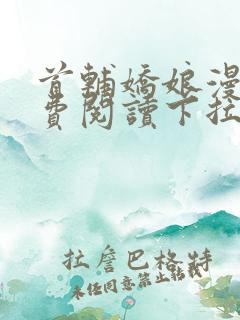 首輔嬌娘漫
費閱讀下拉
拉詹巴格特
未經同意禁止轉載